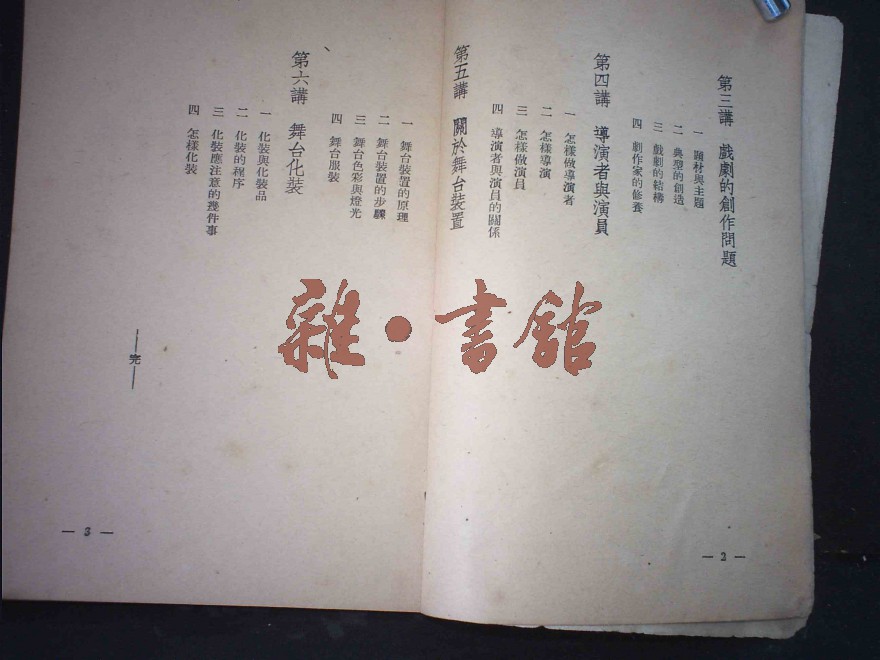 第三講 戲劇的創作問題
一 題材與主題
二 典型的創造
三 戲劇的結構
四 劇作家的修養
第四講 導演者與演員
一 怎樣做導演者
二 怎樣導演
三 怎樣做演員
四 導演者與演員的關係
— 2 —
第五講 關於舞台裝置
一 舞台裝置的原理
二 舞台裝置的步驟
三 舞台色彩與燈光
四 舞台服裝
第六講 舞台化裝
一 化裝與化裝品
二 化裝的程序
三 化裝應注意的幾件事
四 怎樣化裝
—完—
— 3 —
雜·書館